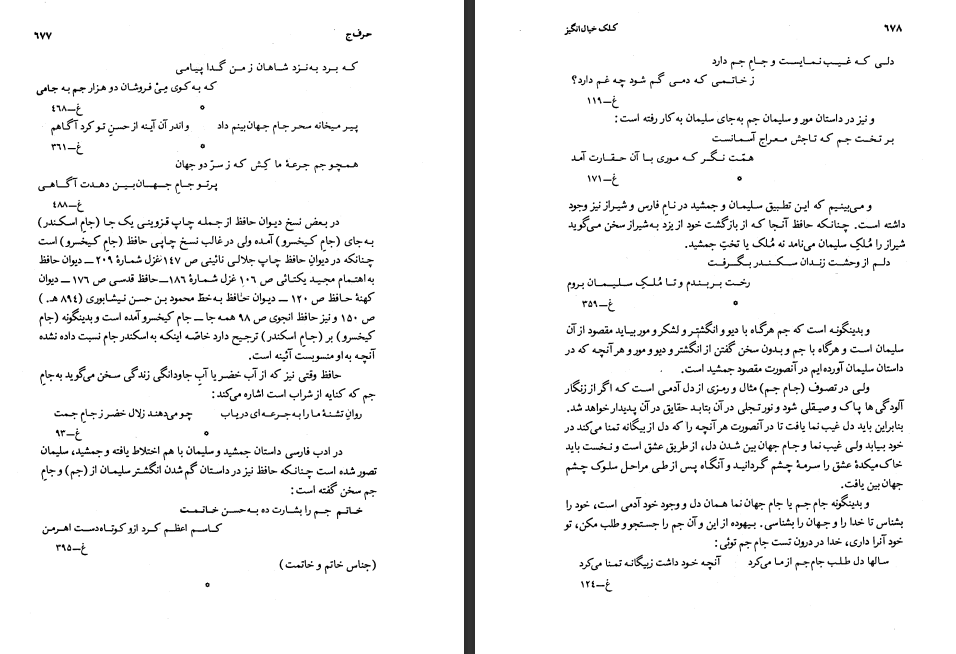 حرف ج
٦٧٧
که برد به‌نزد شاهان ز من گدا پیامی
که به کوی می‌فروشان دو هزار جم به جامی
غ—٤٦٨
پیر میخانه سحر جام جهان‌بینم داد واندر آن آینه از حسن تو کرد آگاهم
غ—٣٦١
همچو جم جرعهٔ ما کِش که ز سرّ دو جهان
پرتو جامِ جهان‌بین دهدت آگاهی
غ—٤٨٨
در بعض نسخ دیوان حافظ از جمله چاپ قزوینی یک جا (جامِ اسکندر)
به‌جای (جامِ کیخسرو) آمده ولی در غالب نسخ چاپی حافظ (جامِ کیخسرو) است
چنانکه در دیوان حافظ چاپ جلالی نائینی ص ١٤٧ غزل شمارهٔ ٢٠٩ — دیوان حافظ
به‌اهتمام مجید یکتائی ص ١٠٦ غزل شمارهٔ ١٨٦— حافظ قدسی ص ١٧٦ — دیوان
کهنهٔ حافظ ص ١٢٠ — دیوان حافظ به‌خطّ محمود بن حسن نیشابوری (٨٩٤ هـ.)
ص ١٥٠ و نیز حافظ انجوی ص ٩٨ همه جا — جام کیخسرو آمده است و بدینگونه (جام
کیخسرو) بر (جامِ اسکندر) ترجیح دارد خاصّه اینکه به‌اسکندر جام نسبت داده نشده
آنچه به او منسوبست آئینه است.
حافظ وقتی نیز که از آب خضر یا آبِ جاودانگی زندگی سخن می‌گوید به‌جامِ
جم که کنایه از شراب است اشاره می‌کند:
روانِ تشنهٔ ما را به‌جرعه‌ای دریاب چو می‌دهند زلال خضر ز جامِ جمت
غ—٩٣
در ادب فارسی داستان جمشید و سلیمان با هم اختلاط یافته و جمشید، سلیمان
تصور شده است چنانکه حافظ نیز در داستان گم شدن انگشتر سلیمان از (جم) و جامِ
جم سخن گفته است:
خاتمِ جم را بشارت ده به‌حسن خاتمت
کاسم اعظم کرد ازو کوتاه دست اهرمن
غ—٣٩٥
(جناس خاتم و خاتمت)
٦٧٨
کلک خیال‌انگیز
دلی که غیب‌نمایست و جامِ جم دارد
ز خاتمی که دمی گم شود چه غم دارد؟
غ—١١٩
و نیز در داستان مور و سلیمان جم به‌جای سلیمان به کار رفته است:
بر تخت جم که تاجش معراج آسمانست
همّت نگر که موری با آن حقارت آمد
غ—١٧١
و می‌بینیم که این تطبیق سلیمان و جمشید در نامِ فارس و شیراز نیز وجود
داشته است. چنانکه حافظ آنجا که از بازگشت خود از یزد به‌شیراز سخن می‌گوید
شیراز را مُلکِ سلیمان می‌نامد نه مُلک یا تختِ جمشید.
دلم از وحشت زندان سکندر بگرفت
رخت بربندم و تا مُلکِ سلیمان بروم
غ—٣٥٩
و بدینگونه است که جم هرگاه با دیو و انگشتر و لشکر و مور بیاید مقصود از آن
سلیمان است و هرگاه با جم و بدون سخن گفتن از انگشتر و دیو و مور و هر آنچه که در
داستان سلیمان آورده‌ایم در آنصورت مقصود جمشید است.
ولی در تصوف (جامِ جم) مثال و رمزی از دل آدمی است که اگر از زنگار
آلودگی‌ها پاک و صیقلی شود و نور تجلی در آن بتابد حقایق در آن پدیدار خواهد شد.
بنابراین باید دل غیب نما یافت تا در آنصورت هر آنچه را که دل از بیگانه تمنا می‌کند در
خود بیابد ولی غیب نما و جام جهان بین شدن دل، از طریق عشق است و نخست باید
خاک میکدهٔ عشق را سرمهٔ چشم گردانید و آنگاه پس از طی مراحل سلوک چشم
جهان بین یافت.
و بدینگونه جام جم یا جام جهان نما همان دل و وجود خود آدمی است، خود را
بشناس تا خدا را و جهان را بشناسی. بیهوده از این و آن جم را جستجو و طلب مکن، تو
خود آنرا داری، خدا در درون تست جام جم توئی:
سالها دل طلب جام جم از ما می‌کرد آنچه خود داشت زبیگانه تمنا می‌کرد
غ—١٢٤